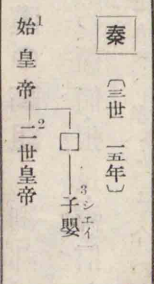 秦
〔三世 一五年〕
始皇帝1
二世皇帝2
□
子嬰3シエイ